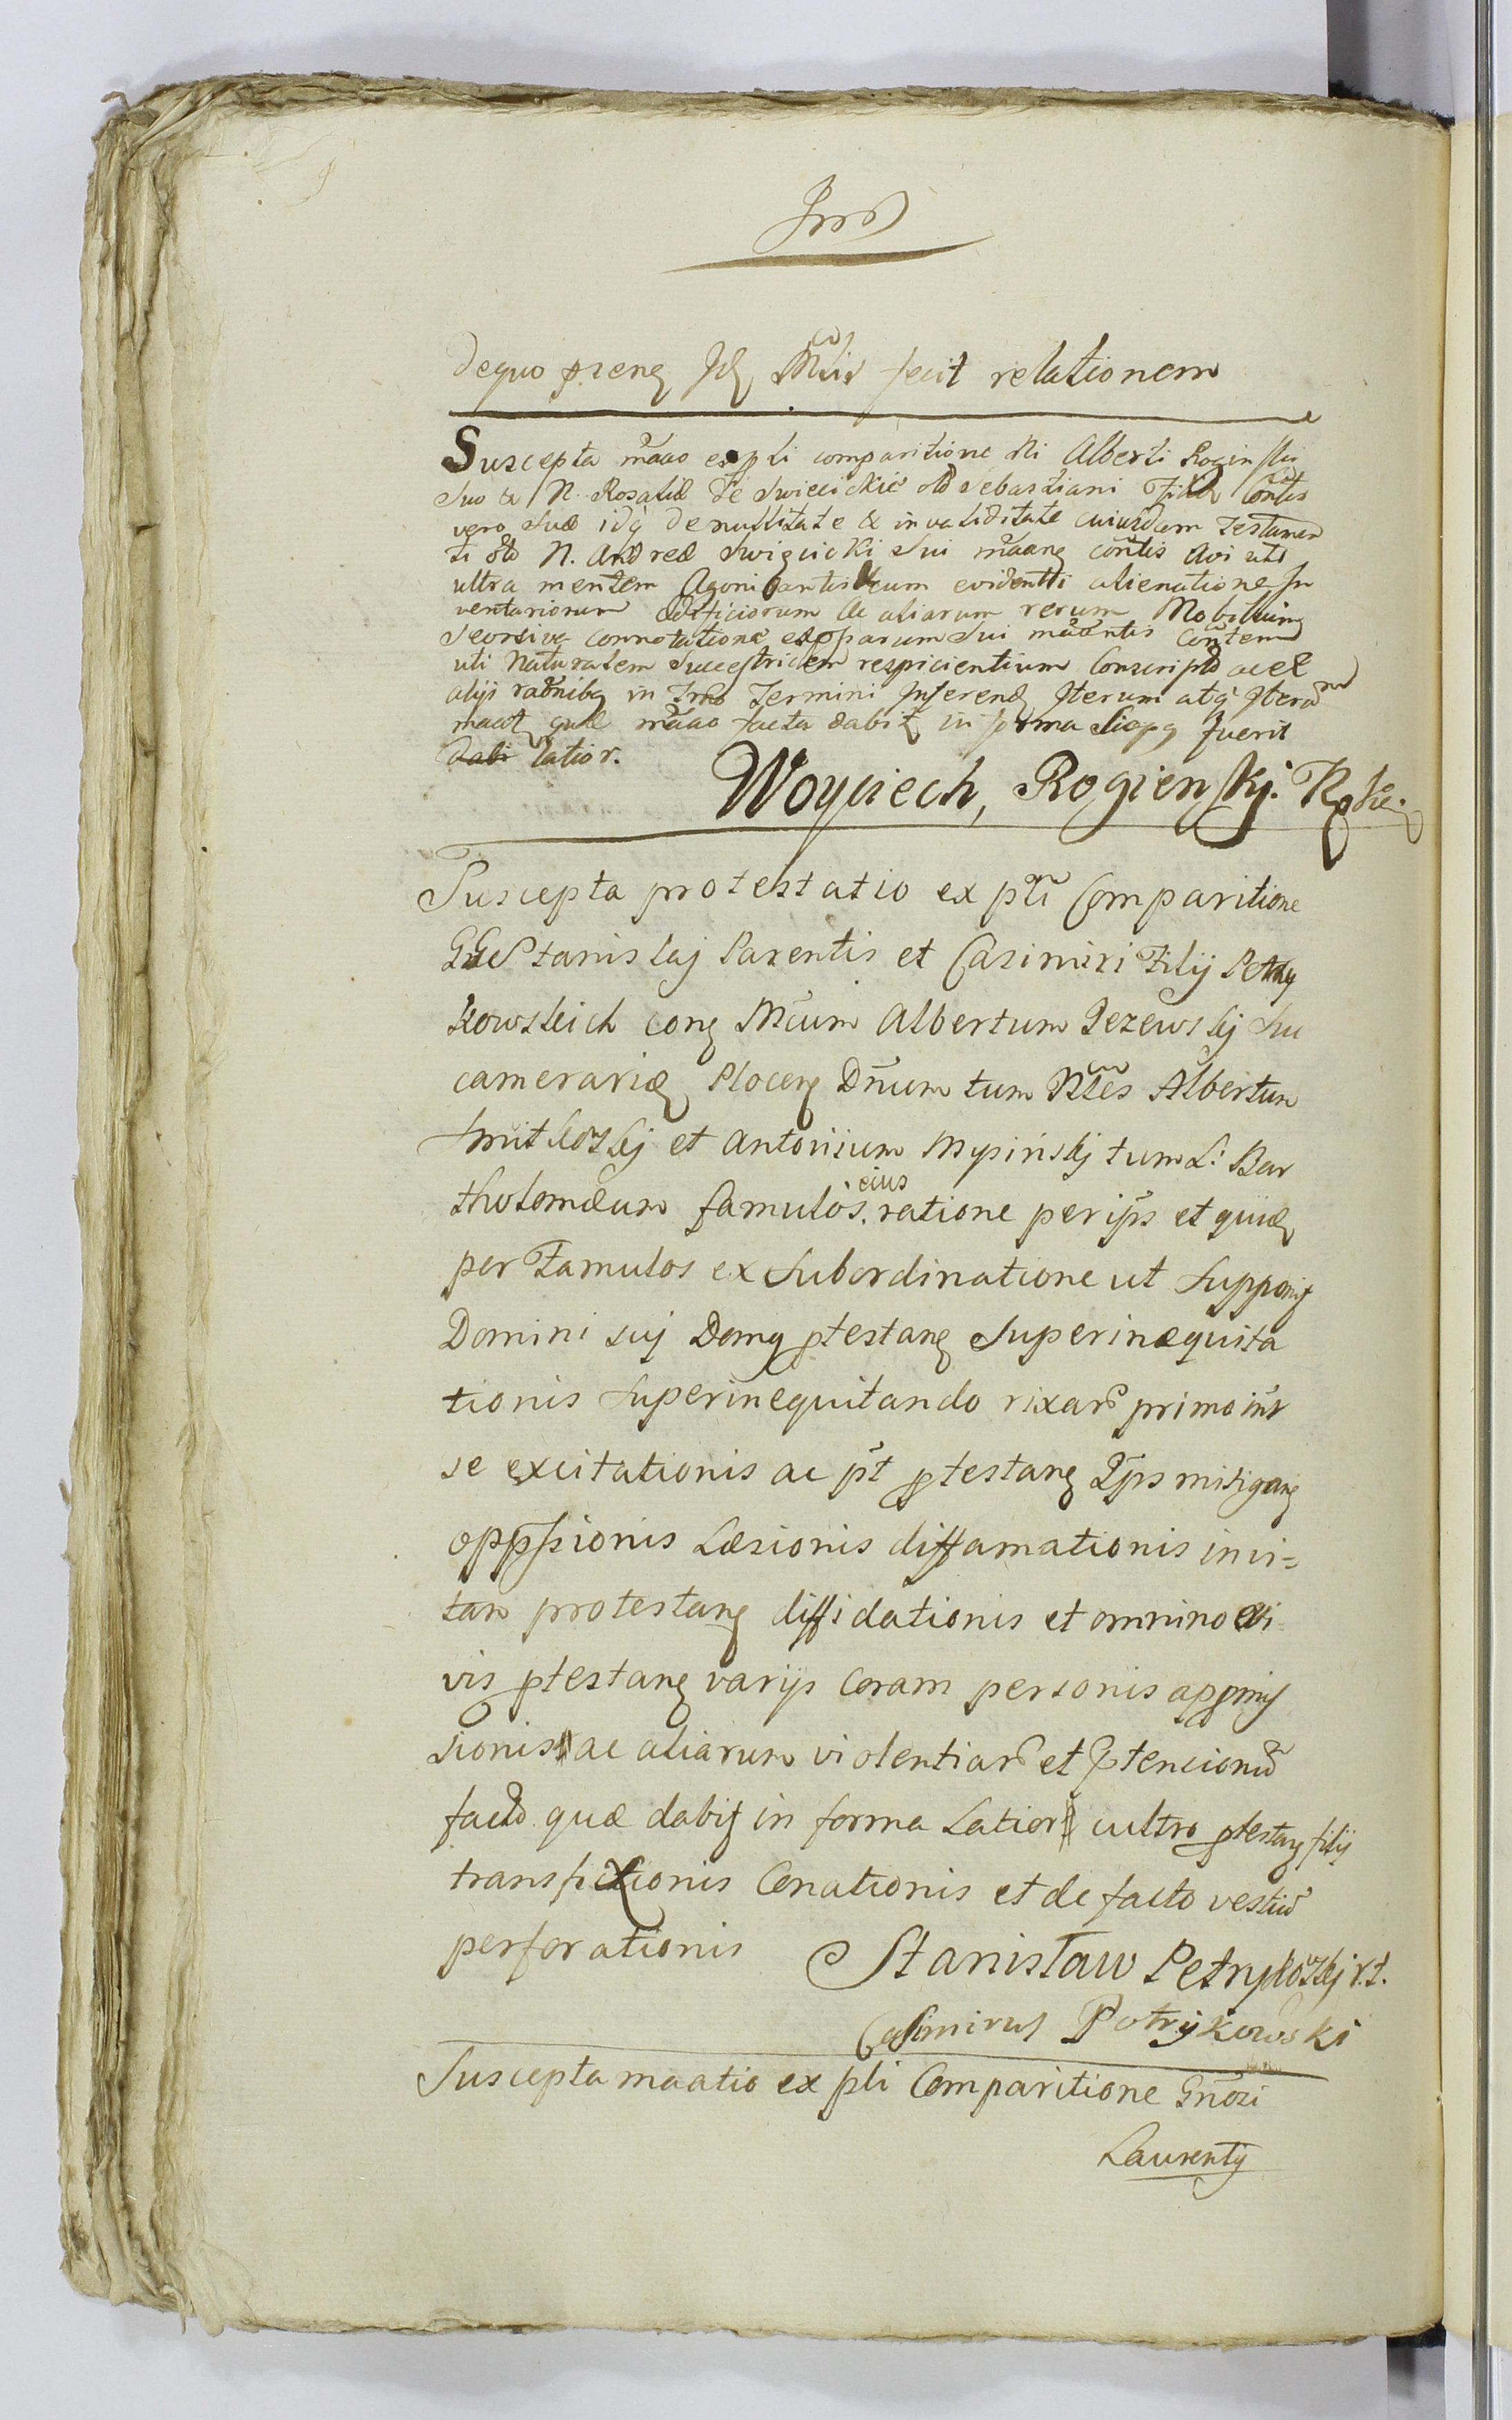 dequo prens Id Mlis fecit relationem
Suscepta mãao ex pli comparitione Ni Alberti Roginski
suo et N. Rosaliæ de Swiecickie olĩ Sebastiani Filiæ Contis
vero suæ idq̃ de nullitate & invaliditate cuiusdam Testamen
ti olĩ N. Andreæ Swięcicki sui mãang cõntis Avi uti
ultra mentem Agonizantis cum evidenti alienatione In
ventariorum Ædificiorum ac aliarum rerum Mobilium
seorsive connotatione sui mãantis Contem
uti Naturalem Successtricem respicientium Conscripti ac ex
alijs raõnibq in Termini Inferend Iterum atq̃ Itera
maat quæ mãao facta dabit in forma fuerit
dabi latior.
Woyciech, Rogienskj.
Suscepta protestatio ex pli Comparitione
GG Stanislaj Parentis et Casimiri Filij Petry
kowskich cong Mcum Albertum Jezewskj Suc
camerariæ Plocens Dñum tum Nles Albertum
Smitkoskj et Antonium Mysinskj tum L: Bar
tholomæum famulos eius ratione per ip̃s et quid
per Famulos ex Subordinatione ut Supponit
Domini suj Domq ptestang Superinæquita
tionis superinequitando rixar̃ primo int̃
se excitationis ac pt̃ ptestang Ip̃s mitigang
opp̃sionis Læsionis diffamationis invi=
tam protestang diffidationis et omnino
vis ptestang varijs coram personis appmis
sionis ac aliarum violentiar̃ et Ptencionũ
facto quæ dabit in forma Latiori cultro ptestang filij
transfixionis Conationis et de facto vestiũ
perforationis Stanisław Petrykoskj r.t.
Casimirus Potrykowski
Suscepta maatio ex pli Comparitione Gñosi
Laurentij